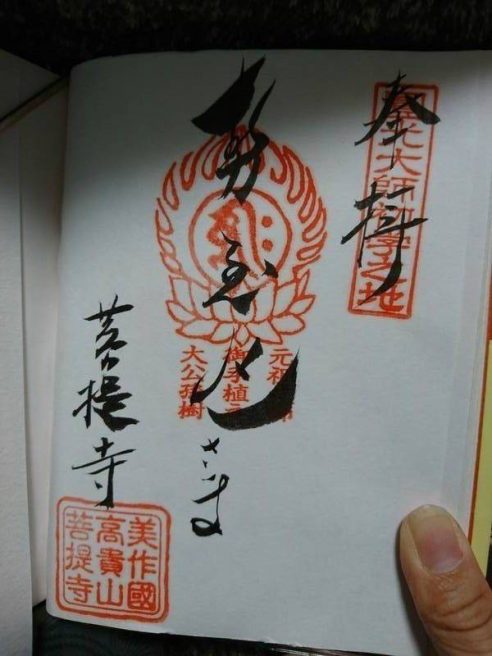 奉拝
光大師 学之地
勢至丸さま
元祖
御手植
大公孫樹
菩提寺
美作國
高貴山
菩提寺